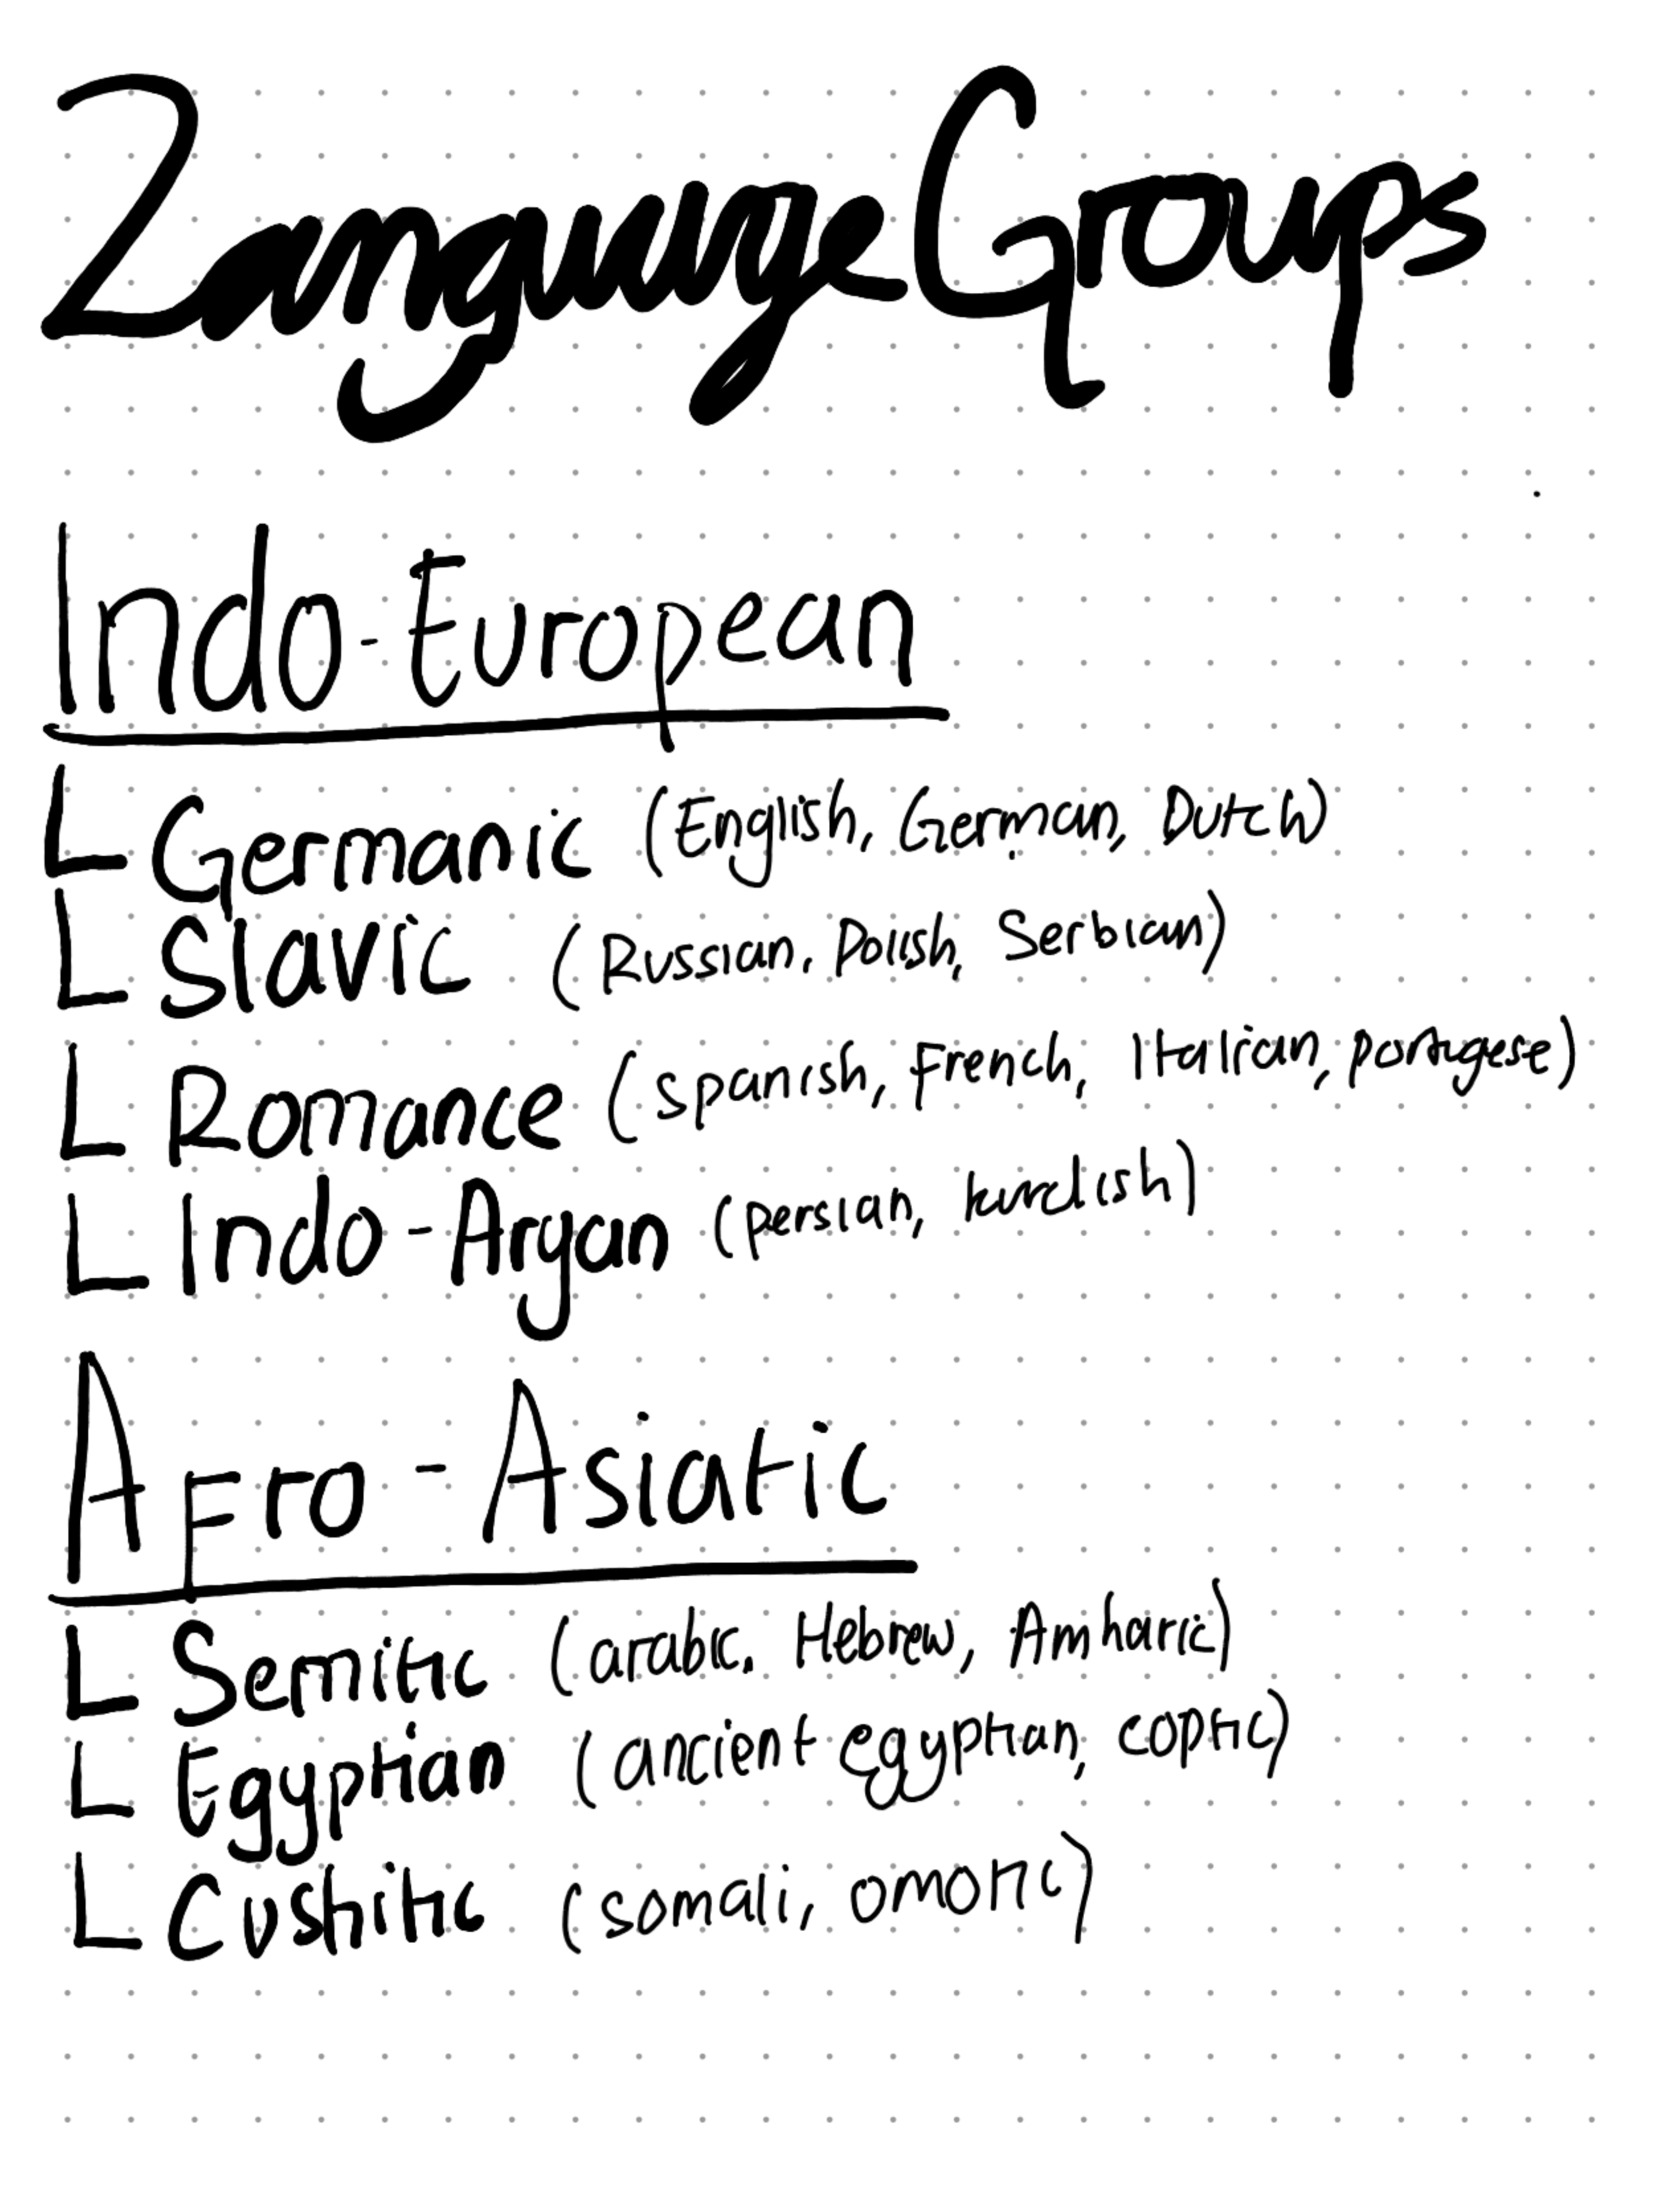 Language Groups
Indo-European
L Germanic (English, German, Dutch)
L Slavic (Russian, Polish, Serbian)
L Romance (spanish, French, Italian, portugese)
L Indo-Aryan (persian, kurdish)
Afro-Asiatic
L Semitic (arabic, Hebrew, Amharic)
L Egyptian (ancient egyptian, coptic)
L Cushitic (somali, omotic)